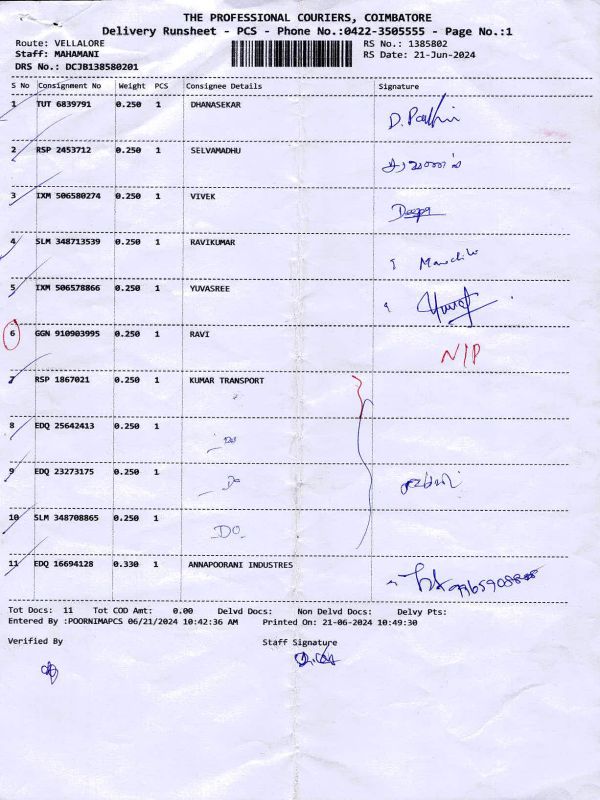 THE PROFESSIONAL COURIERS, COIMBATORE
Delivery Runsheet - PCS - Phone No.:0422-3505555 - Page No.:1
Route: VELLALORE RS No.: 1385802
Staff: MAHAMANI RS Date: 21-Jun-2024
DRS No.: DCJB138580201
S No Consignment No Weight PCS Consignee Details Signature
1 TUT 6839791 0.250 1 DHANASEKAR
2 RSP 2453712 0.250 1 SELVAMADHU
3 IXM 506580274 0.250 1 VIVEK Deepa
4 SLM 348713539 0.250 1 RAVIKUMAR
5 IXM 506578866 0.250 1 YUVASREE
6 GGN 910903995 0.250 1 RAVI N/P
7 RSP 1867021 0.250 1 KUMAR TRANSPORT
8 EDQ 25642413 0.250 1 Do
9 EDQ 23273175 0.250 1 Do
10 SLM 348708865 0.250 1 DO
11 EDQ 16694128 0.330 1 ANNAPOORANI INDUSTRES
Tot Docs: 11 Tot COD Amt: 0.00 Delvd Docs: Non Delvd Docs: Delvy Pts:
Entered By :POORNIMAPCS 06/21/2024 10:42:36 AM Printed On: 21-06-2024 10:49:30
Verified By Staff Signature